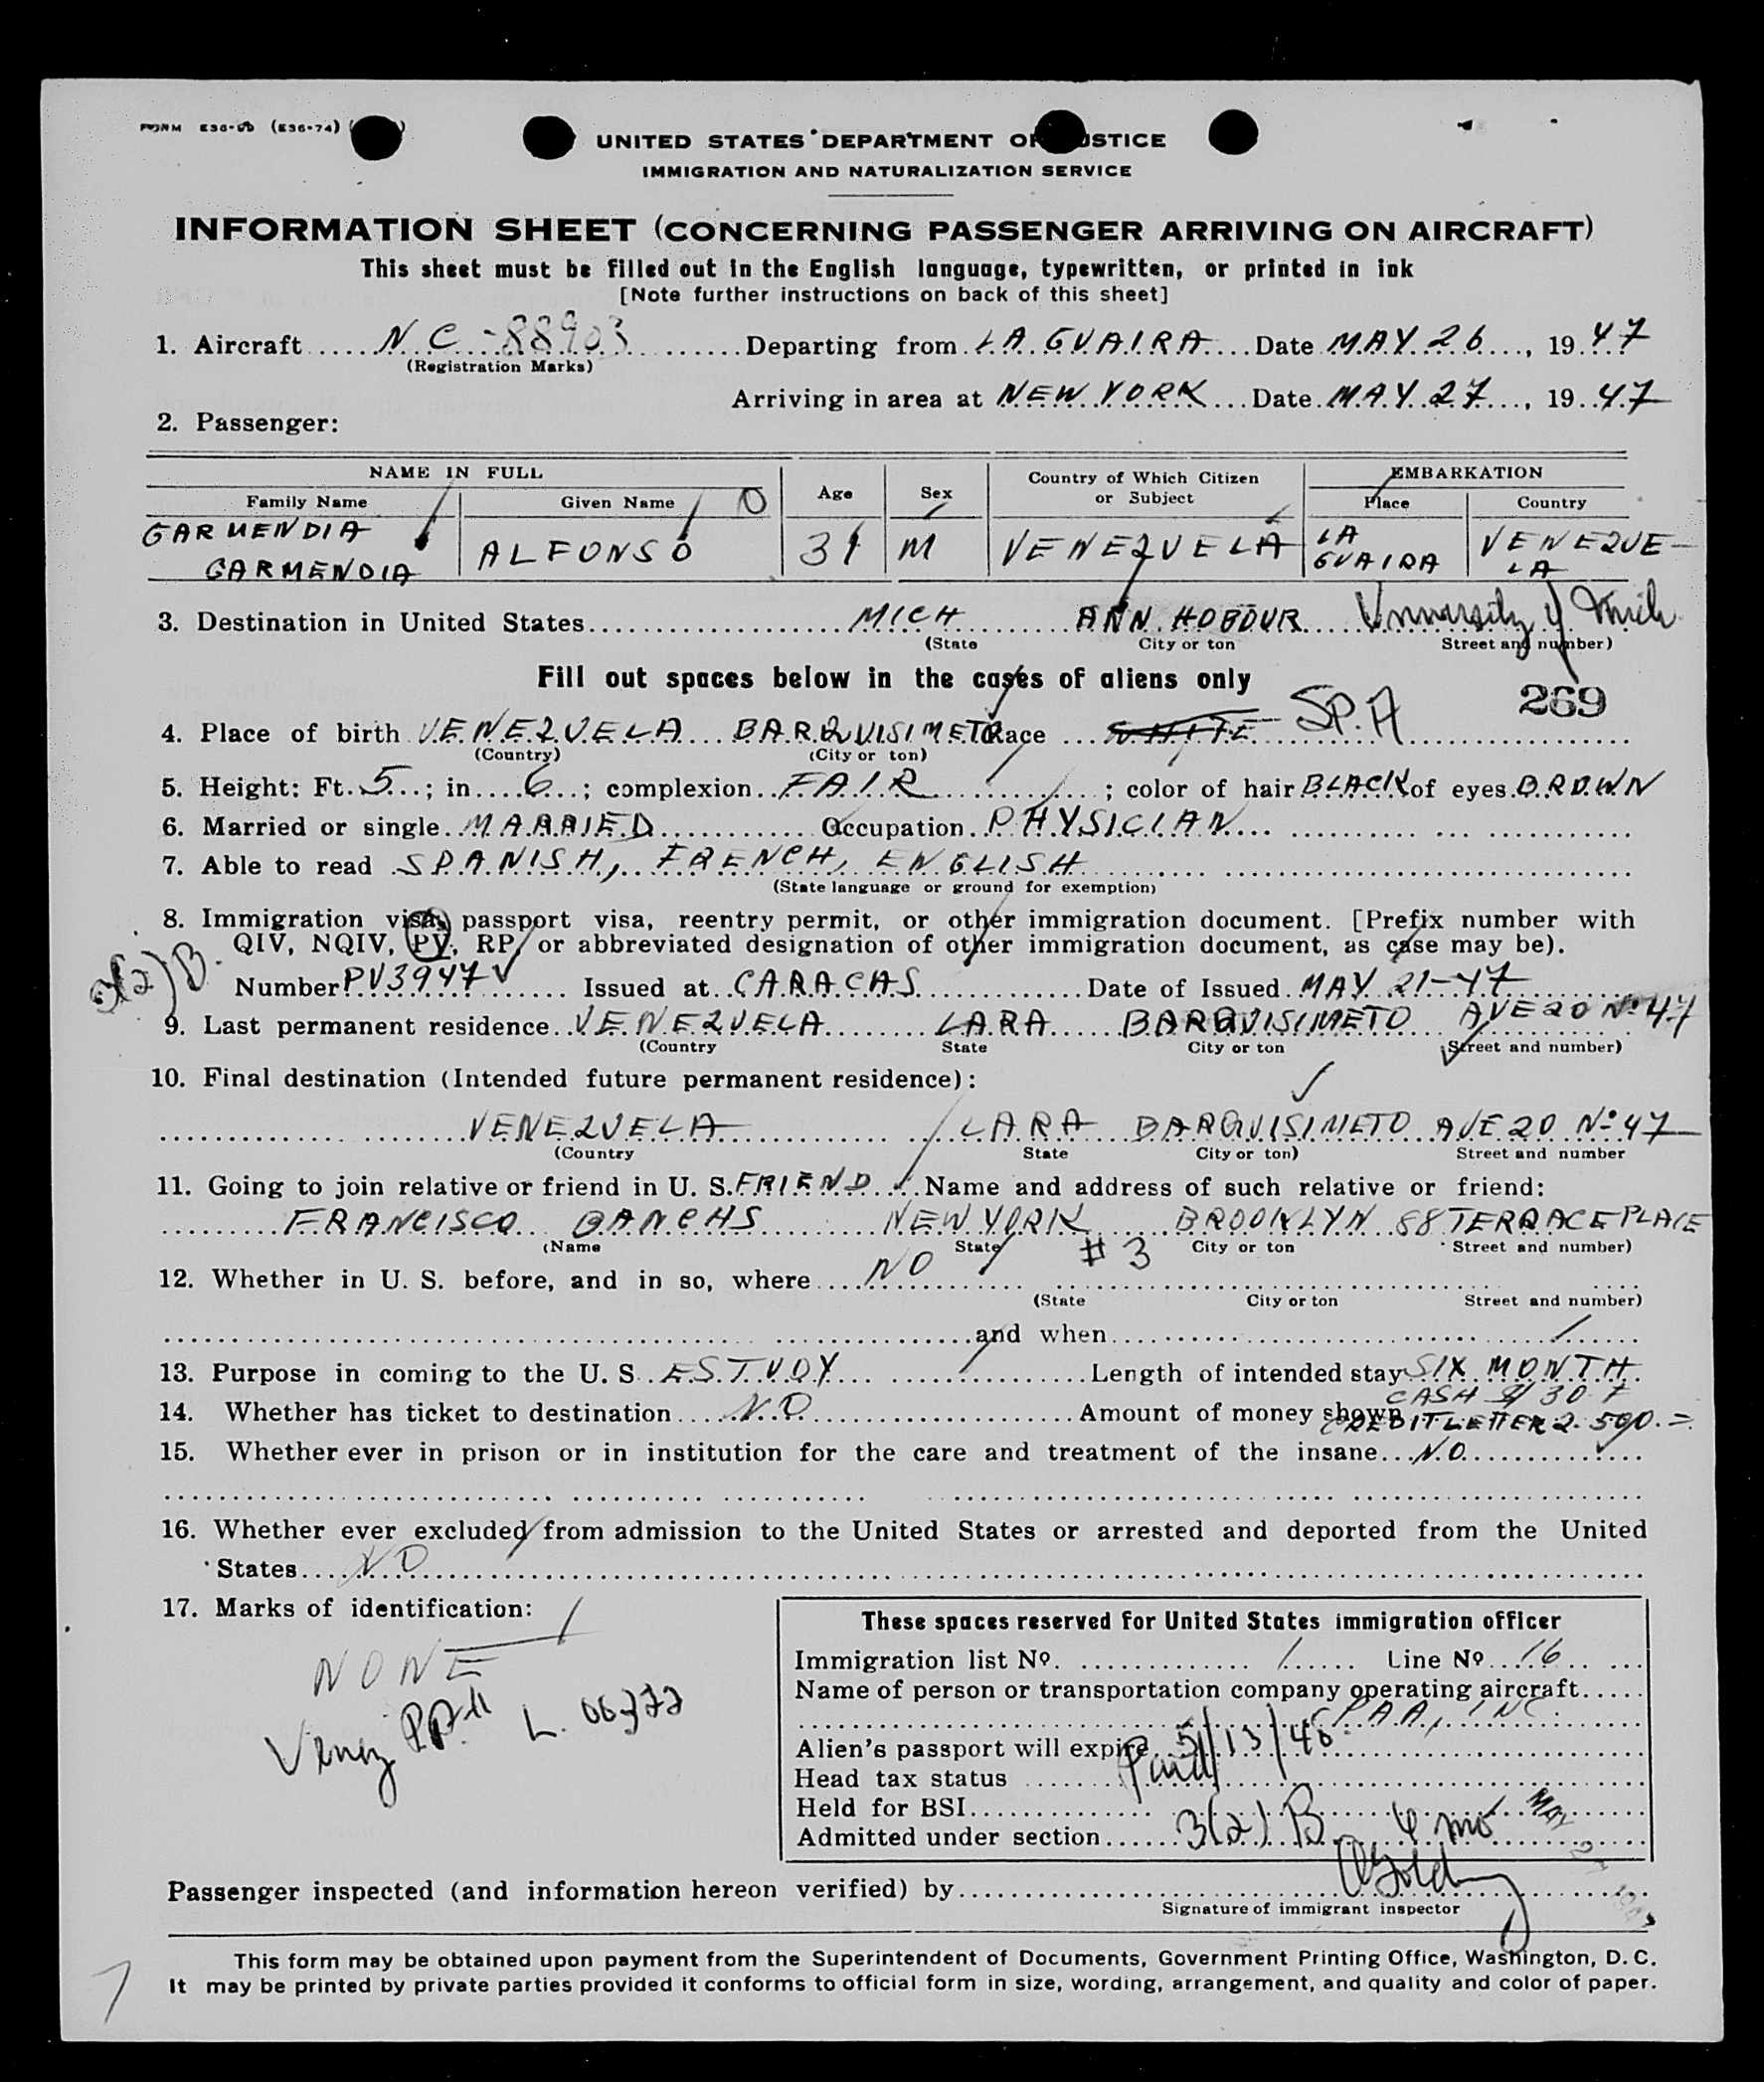 UNITED STATES DEPARTMENT OF JUSTICE
IMMIGRATION AND NATURALIZATION SERVICE
INFORMATION SHEET (CONCERNING PASSENGER ARRIVING ON AIRCRAFT)
This sheet must be filled out in the English language, typewritten, or printed in ink
[Note further instructions on back of this sheet]
1. Aircraft NC-88903 Departing from LA GUAIRA Date MAY 26, 1947
(Registration Marks)
Arriving in area at NEW YORK Date MAY 27, 1947
2. Passenger:
NAME IN FULL Age Sex Country of Which Citizen or Subject EMBARKATION
Family Name Given Name Place Country
GARMENDIA ALFONSO 31 M VENEZUELA LA GUAIRA VENEZUE-LA
GARMENDIA
3. Destination in United States MICH ANN HOBOUR University of Mich
(State City or ton Street and number)
Fill out spaces below in the cases of aliens only
269
4. Place of birth VENEZUELA BARQUISIMETO Race WHITE SP.A
(Country) (City or ton)
5. Height: Ft. 5; in. 6; complexion FAIR; color of hair BLACK of eyes BROWN
6. Married or single MARRIED Occupation PHYSICIAN
7. Able to read SPANISH, FRENCH, ENGLISH
(State language or ground for exemption)
8. Immigration visa, passport visa, reentry permit, or other immigration document. [Prefix number with
QIV, NQIV, PV, RP, or abbreviated designation of other immigration document, as case may be).
3(2)B.
Number PV3947 Issued at CARACAS Date of Issued MAY 21-47
9. Last permanent residence VENEZUELA LARA BARQUISIMETO AVE 20 Nº 47
(Country State City or ton Street and number)
10. Final destination (Intended future permanent residence):
VENEZUELA LARA BARQUISIMETO AVE 20 Nº 47
(Country State City or ton) Street and number
11. Going to join relative or friend in U. S. FRIEND Name and address of such relative or friend:
FRANCISCO BANCHS NEW YORK BROOKLYN 88 TERRACE PLACE
(Name State City or ton Street and number)
# 3
12. Whether in U. S. before, and in so, where NO
(State City or ton Street and number)
and when
13. Purpose in coming to the U. S. ESTUDY Length of intended stay SIX MONTH
14. Whether has ticket to destination NO Amount of money shown CASH $130
CREDIT LETTER 2.500.=
15. Whether ever in prison or in institution for the care and treatment of the insane NO
16. Whether ever excluded from admission to the United States or arrested and deported from the United
States NO
17. Marks of identification:
NONE
L. 06372
These spaces reserved for United States immigration officer
Immigration list Nº. 1 Line Nº 16
Name of person or transportation company operating aircraft
PAA, INC.
Alien's passport will expire 5/13/48
Head tax status Paid
Held for BSI
Admitted under section 3(2)B 6 mo
MAY 27 1947
Passenger inspected (and information hereon verified) by
Signature of immigrant inspector
This form may be obtained upon payment from the Superintendent of Documents, Government Printing Office, Washington, D. C.
It may be printed by private parties provided it conforms to official form in size, wording, arrangement, and quality and color of paper.